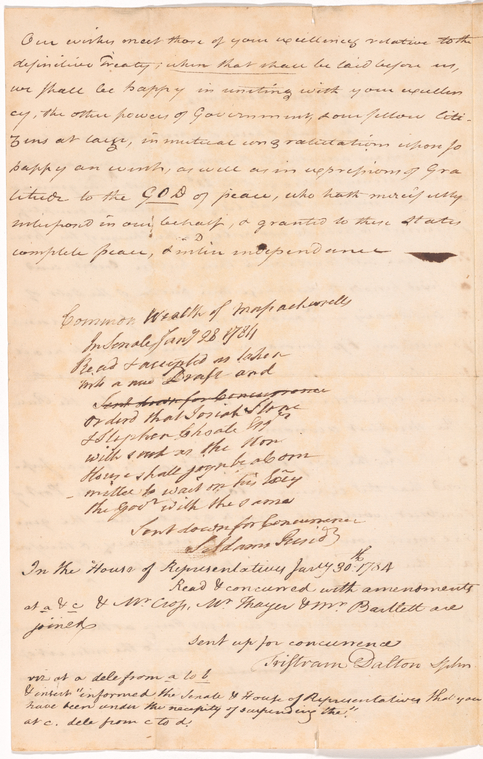 Our wishes meet those of your excellency relative to the
definitive Treaty; when that shall be laid before us,
we shall be happy in uniting with your excellen
cy, the other powers of Government, & our fellow Citi-
zens at large, in mutual congratulations upon so
happy an event, as well as in expressions of Gra
titude to the GOD of peace, who hath mercifully
interposed in our behalf, & granted to these States
complete peace, & independance
Common Wealth of Massachusetts
In Senate Jany 28 1784
Read & accepted as taken
into a new Draft and
Sent down for Concurrence
orderd that Josiah Stone
& Stephen Choate Esqrs
with such as the Hon
House shall joyn be a Com
mittee to wait on his Excy
the Govr with the same
Sent down for Concurrence
S. Adams Presidt
In the House of Representatives Jany 30th 1784
Read & concurred with amendments
at a & c & Mr Cross, Mr Thayer & Mr Bartlett are
joined
Sent up for concurrence
Tristram Dalton Spkr
viz at a dele from a to b
& insert "informed the Senate & House of Representatives that you
have been under the necessity of suspending the"
at c. dele from c to d.